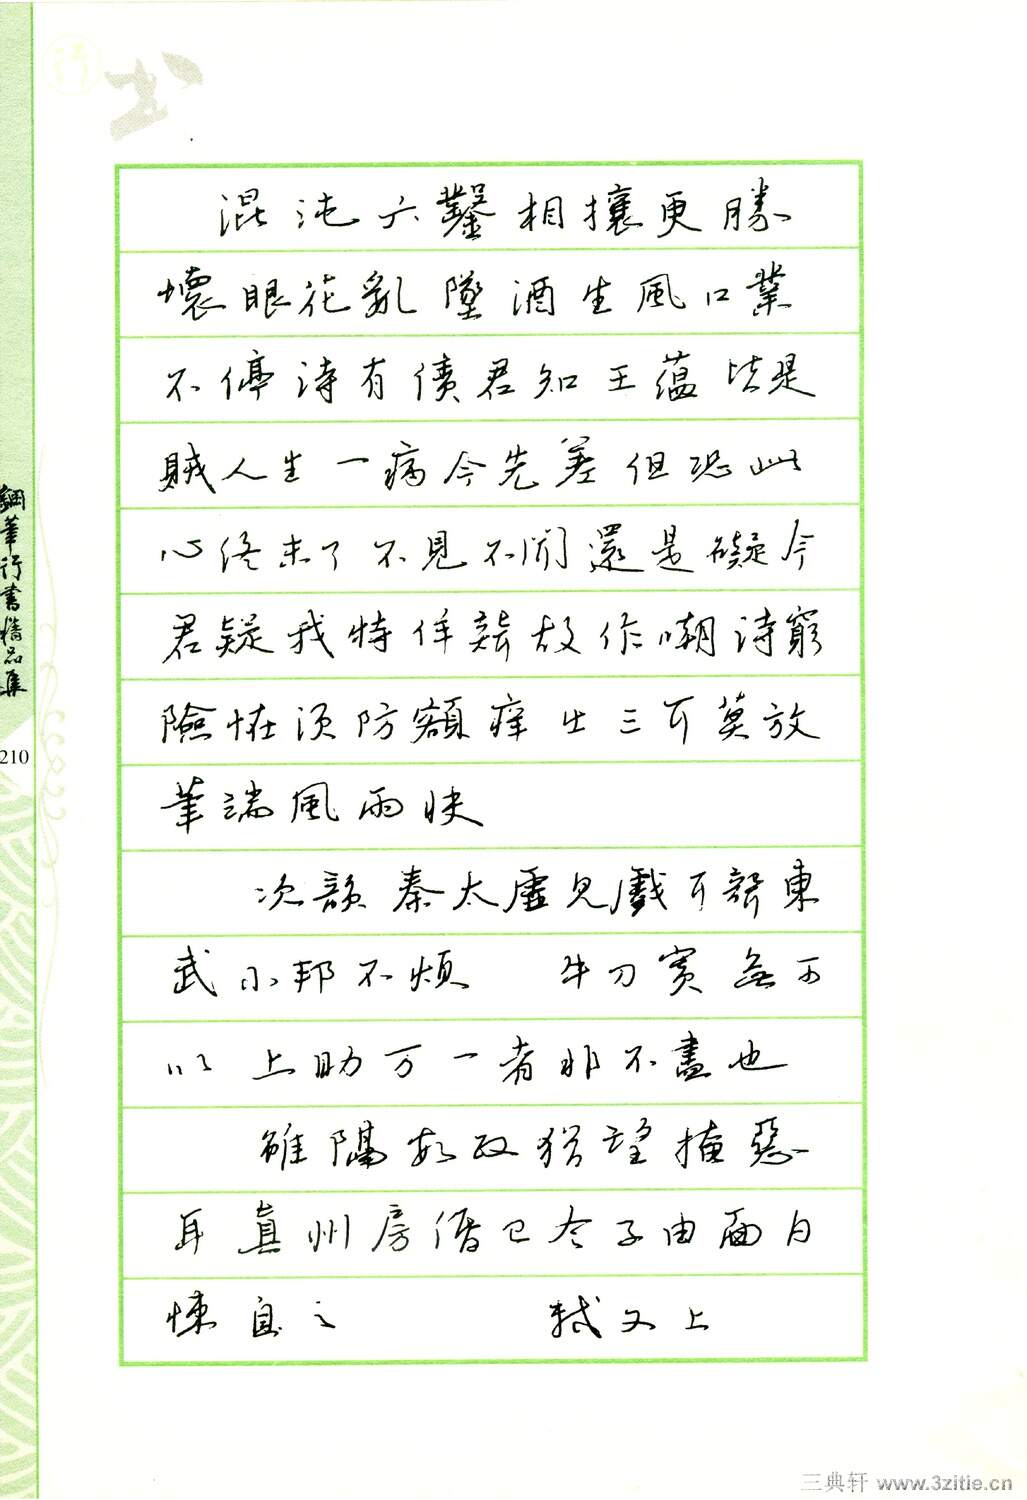 行书
混沌六鑿相攘更勝
壞眼花亂墜酒生風口業
不停詩有債君知五蘊皆是
賊人生一病今先差但恐此
心終未了不見不聞還是礙今
君疑我特佯聾故作嘲詩窮
險怪須防額癢出三耳莫放
筆端風雨快
次韻秦太虛見戲耳聾東
武小邦不煩 牛刀實無可
以上助万一者非不盡也
雖隔數政猶望掩惡
耳真州房緡已令子由面白
悚息之 軾又上
鋼筆行書精品集
210
三典轩 www.3zitie.cn